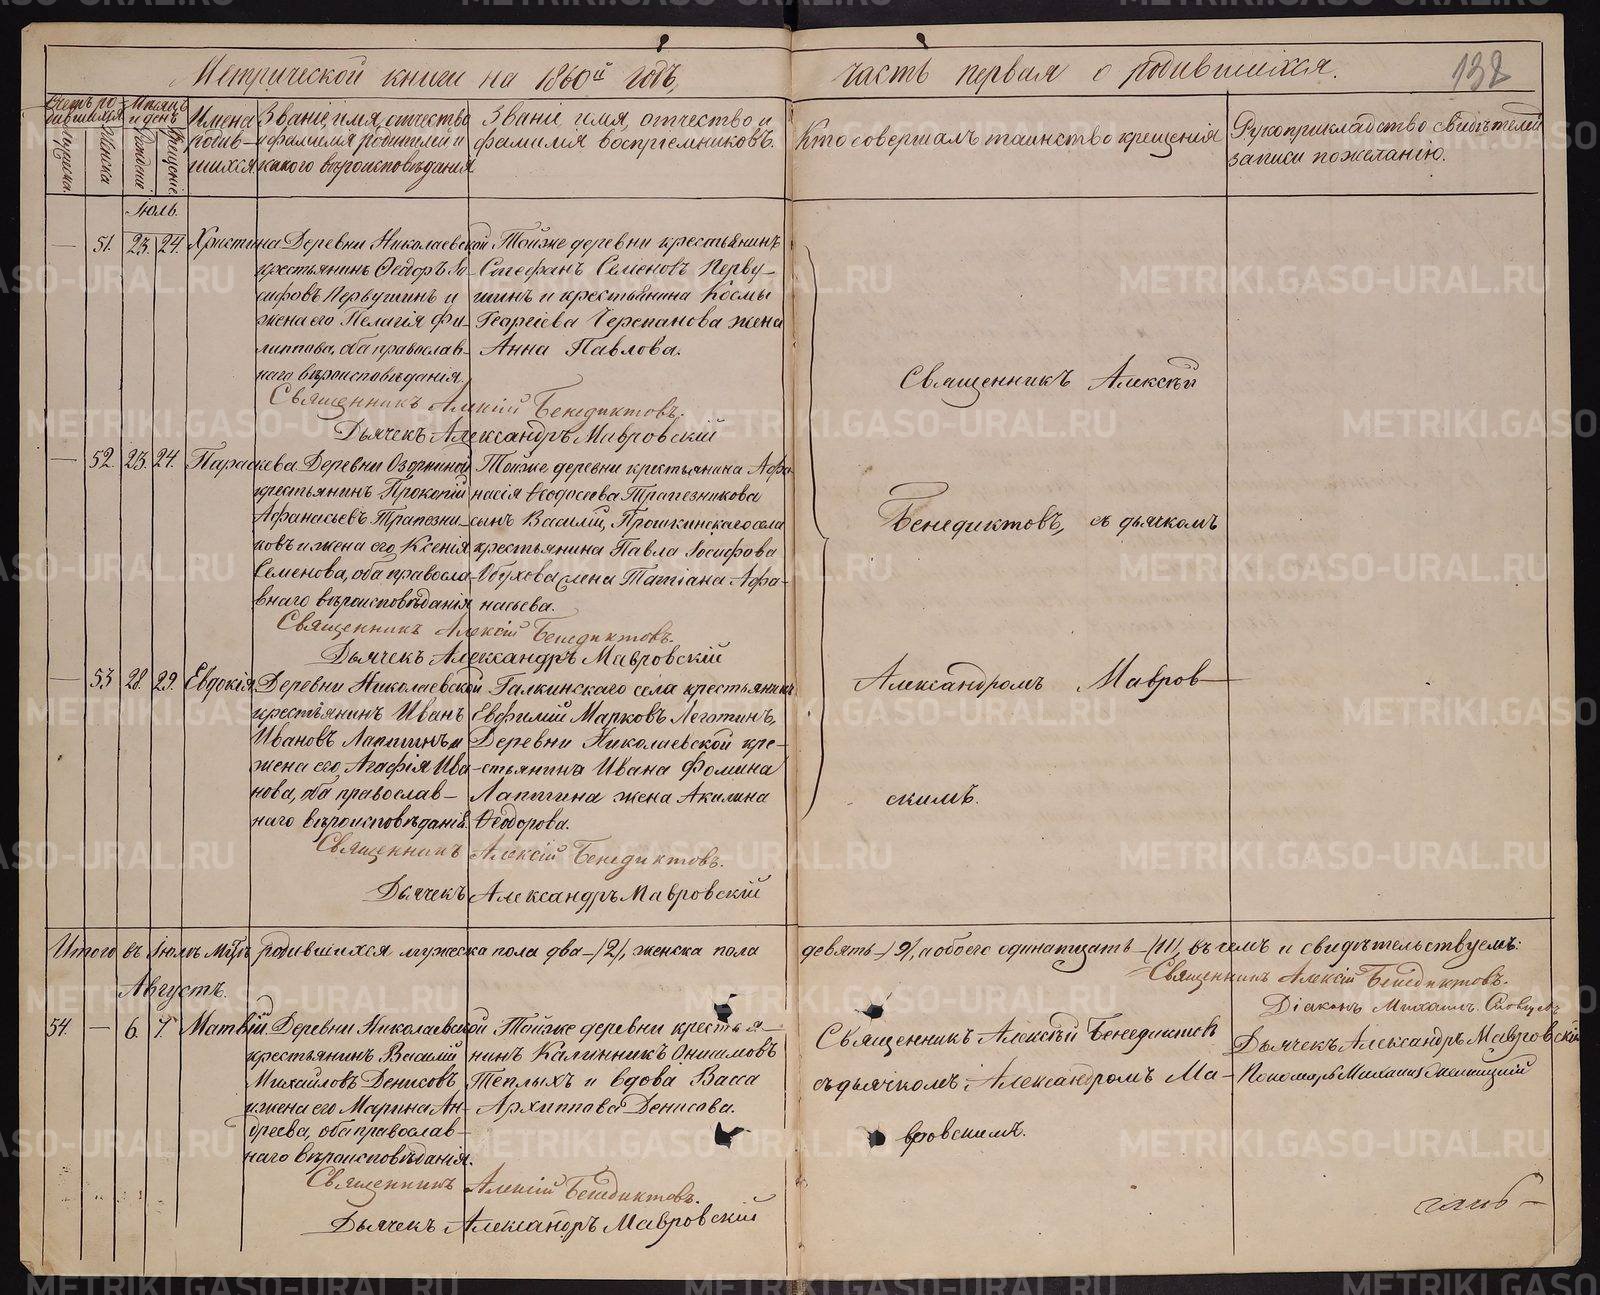 Метрической книги на 1860й годъ, часть первая о родившихся. 132
Счетъ родившихся
Мѣсяцъ и день
Мужеска.
Женска
Рожденія.
Крещенія.
Имена родившихся
Званіе, имя, отчество и фамилія родителей и какого вѣроисповѣданія
Званіе имя, отчество и фамилія воспріемниковъ.
Кто совершалъ таинство крещенія
Рукоприкладство свидѣтелей записи по желанію.
Іюль.
— 51. 23. 24. Христина
Деревни Николаевской
крестьянинъ Ѳеодоръ Іо-
сифовъ Первушинъ и
жена его Пелагія Фи-
липпова, оба православ-
наго вѣроисповѣданія.
Тойже деревни крестьянинъ
Стефанъ Семеновъ Перву-
шинъ и крестьянина Космы
Георгіева Черепанова жена
Анна Павлова.
Священникъ Алексій Бенедиктовъ.
Дьячекъ Александръ Мавровскій
— 52. 23. 24. Параскева
Деревни
крестьянинъ Прокопій
Афанасьевъ Трапезни-
ковъ и жена его Ксенія
Семенова, оба правосла-
внаго вѣроисповѣданія
Тойже деревни крестьянина Афа-
насія Ѳеодосіева Трапезникова
сынъ Василій, Прошкинскаго села
крестьянина Павла Іосифова
Обухова жена Татіана Афа-
насьева.
Священникъ Алексій Бенедиктовъ.
Дьячекъ Александръ Мавровскій
— 53 28. 29. Евдокія
Деревни Николаевской
крестьянинъ Иванъ
Ивановъ Лаптинъ и
жена его Агафія Ива-
нова, оба православ-
наго вѣроисповѣданія.
Галкинскаго села крестьянинъ
Евфимій Марковъ Леготинъ,
Деревни Николаевской кре-
стьянина Ивана Фомина
Лаптина жена Акилина
Ѳеодорова.
Священникъ Алексій Бенедиктовъ.
Дьячекъ Александръ Мавровскій
Священникъ Алексѣй
Бенедиктовъ, съ дьячкомъ
Александромъ Мавров-
скимъ.
Итого въ Іюлѣ мѣсяцѣ родившихся мужеска пола два-/2/, женска пола девять-/9/, а обоего одинатцать-/11/, въ чемъ и свидѣтельствуемъ:
Священникъ Алексій Бенедиктовъ.
Діаконъ Михаилъ
Дьячекъ Александръ Мавровскій
Пономарь Михаилъ
Августъ.
54. — 6. 7. Матвій
Деревни Николаевской
крестьянинъ Василій
Михайловъ Денисовъ
и жена его Марина Ан-
дреева, оба православ-
наго вѣроисповѣданія.
Тойже деревни крестья-
нинъ Калинникъ Онисимовъ
Теплыхъ и вдова Васса
Архиппова Денисова.
Священникъ Алексѣй Бенедиктовъ
съ дьячкомъ Александромъ Ма-
вровскимъ.
Священникъ Алексій Бенедиктовъ.
Дьячекъ Александръ Мавровскій
METRIKI.GASO-URAL.RU